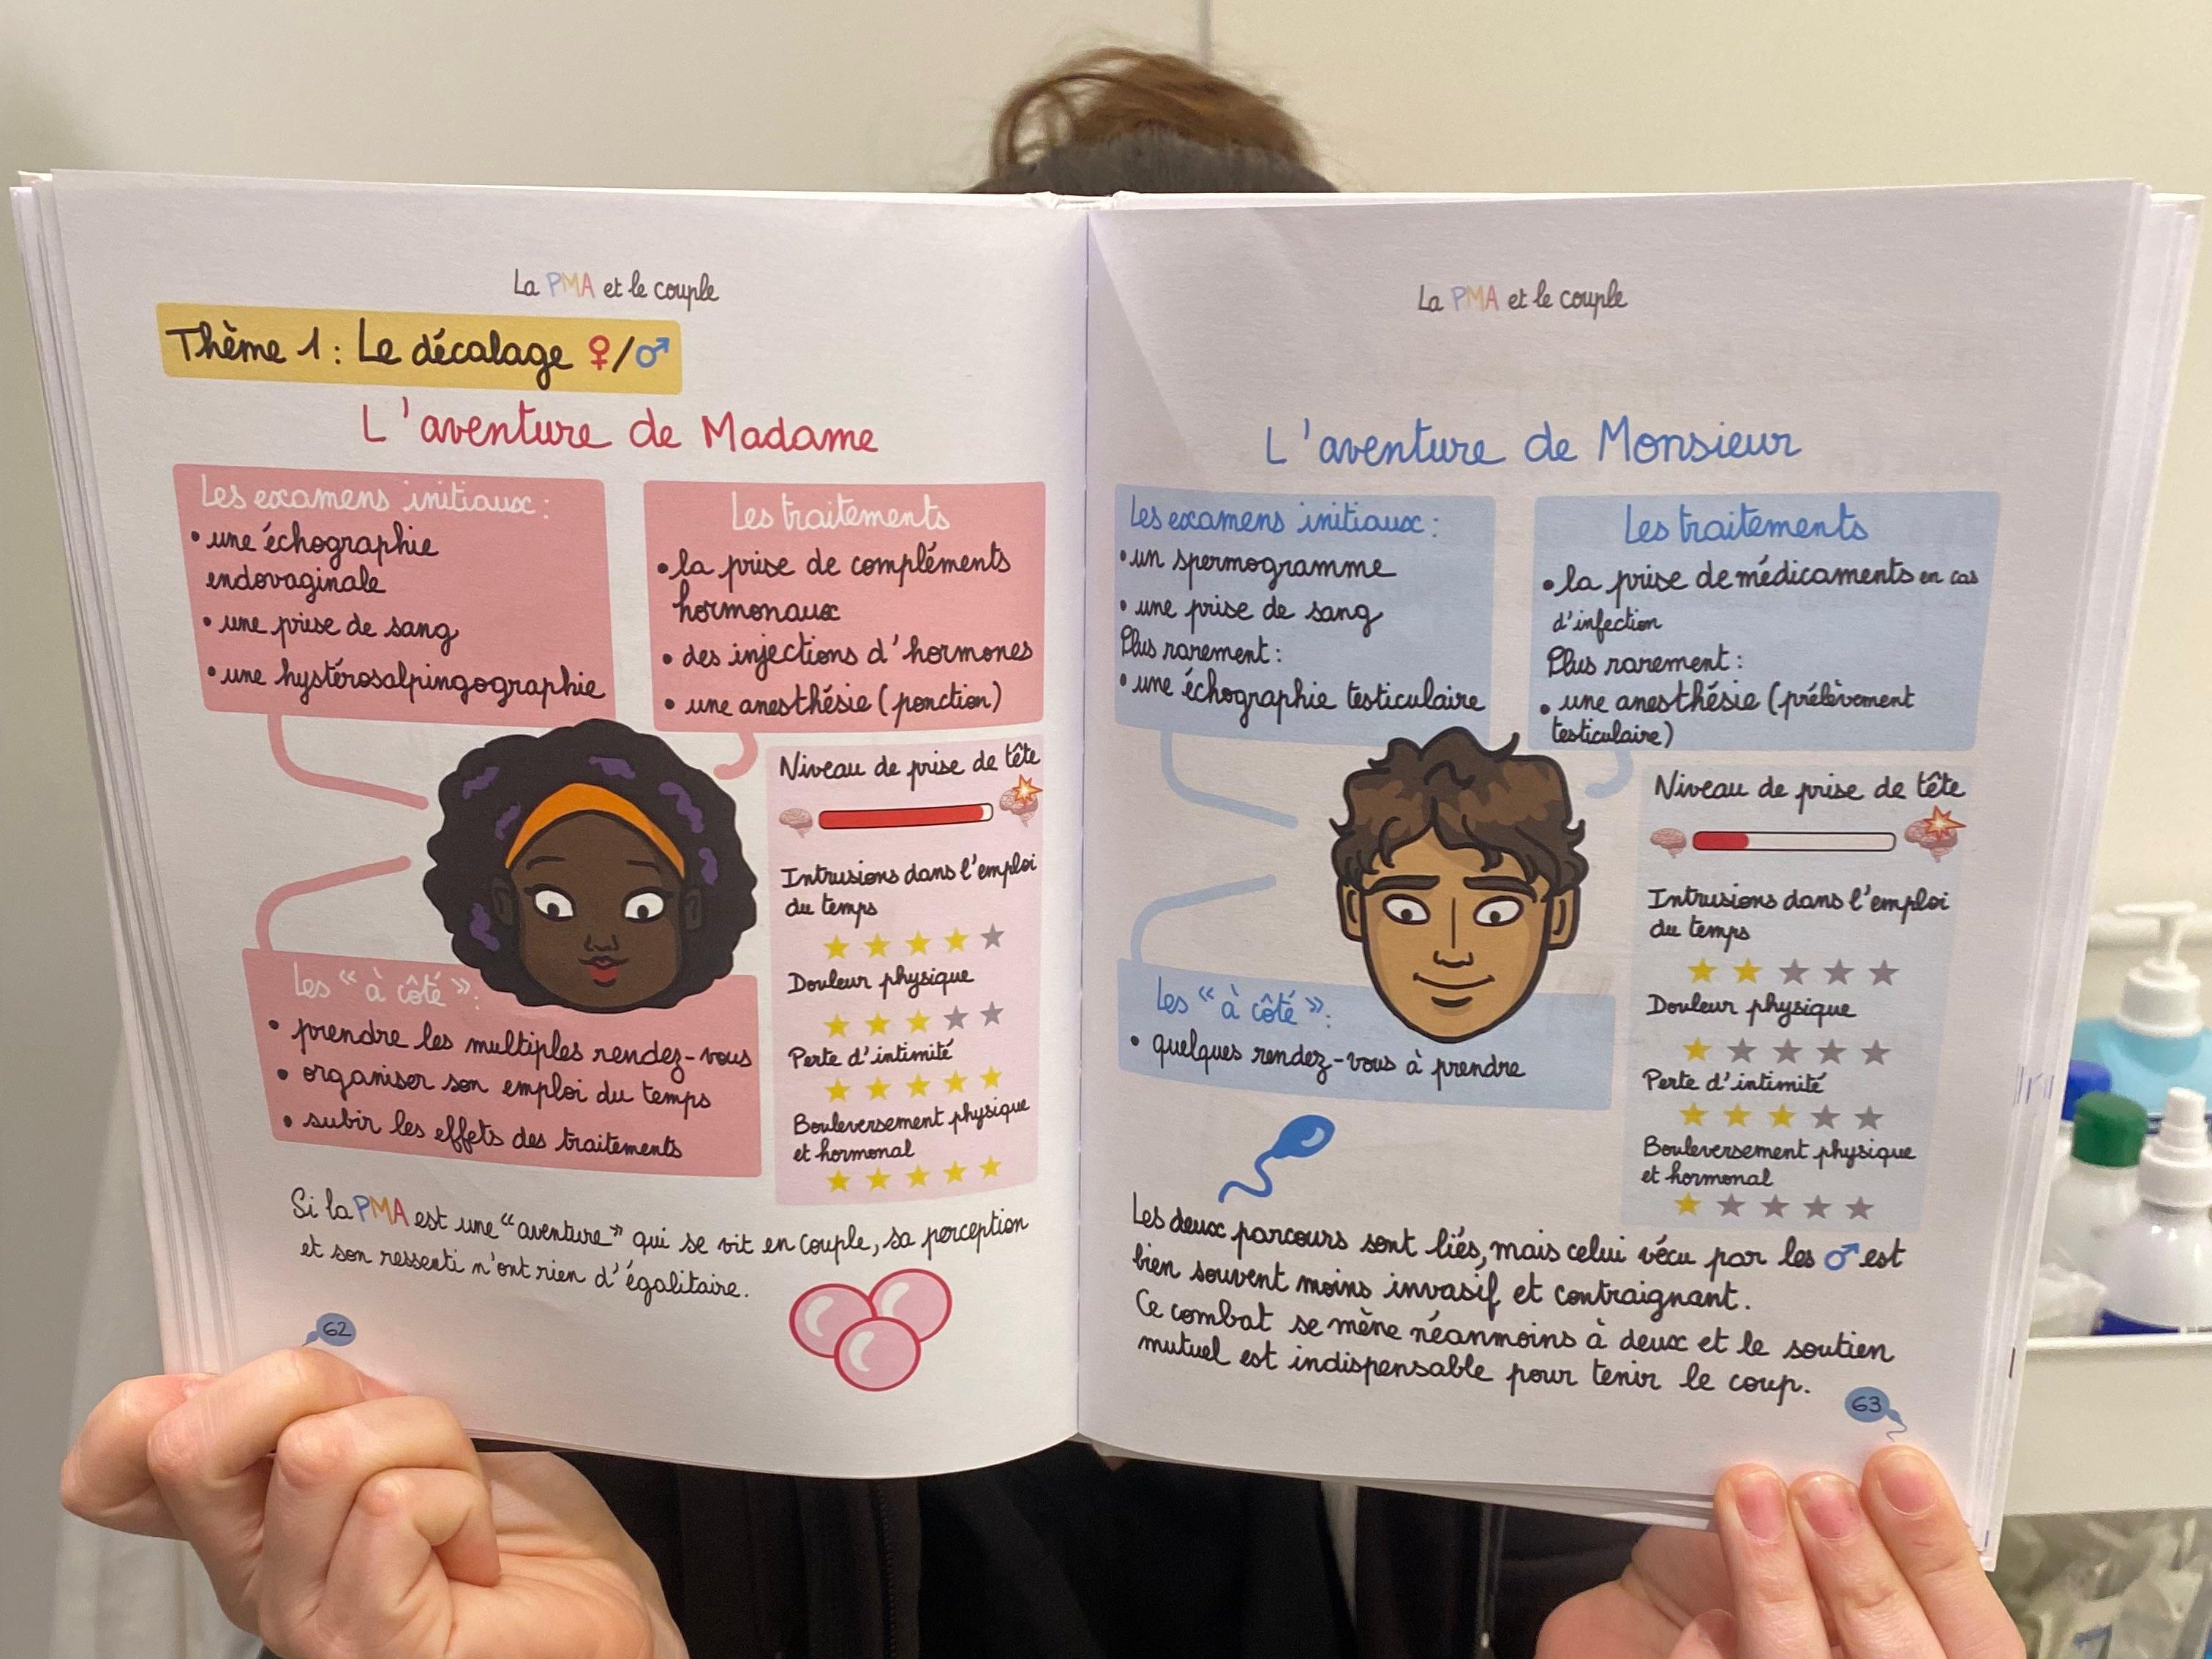 La PMA et le couple
Thème 1 : Le décalage ♀/♂
L'aventure de Madame
Les examens initiaux :
• une échographie
endovaginale
• une prise de sang
• une hystérosalpingographie
Les traitements
• la prise de compléments
hormonaux
• des injections d'hormones
• une anesthésie (ponction)
Niveau de prise de tête
Intrusions dans l'emploi
du temps
Douleur physique
Perte d'intimité
Bouleversement physique
et hormonal
Les "à côté" :
• prendre les multiples rendez-vous
• organiser son emploi du temps
• subir les effets des traitements
Si la PMA est une "aventure" qui se vit en couple, sa perception
et son ressenti n'ont rien d'égalitaire.
62
La PMA et le couple
L'aventure de Monsieur
Les examens initiaux :
• un spermogramme
• une prise de sang
Plus rarement :
• une échographie testiculaire
Les traitements
• la prise de médicaments en cas
d'infection
Plus rarement :
• une anesthésie (prélèvement
testiculaire)
Niveau de prise de tête
Intrusions dans l'emploi
du temps
Douleur physique
Perte d'intimité
Bouleversement physique
et hormonal
Les "à côté" :
• quelques rendez-vous à prendre
Les deux parcours sont liés, mais celui vécu par les ♂ est
bien souvent moins invasif et contraignant.
Ce combat se mène néanmoins à deux et le soutien
mutuel est indispensable pour tenir le coup.
63